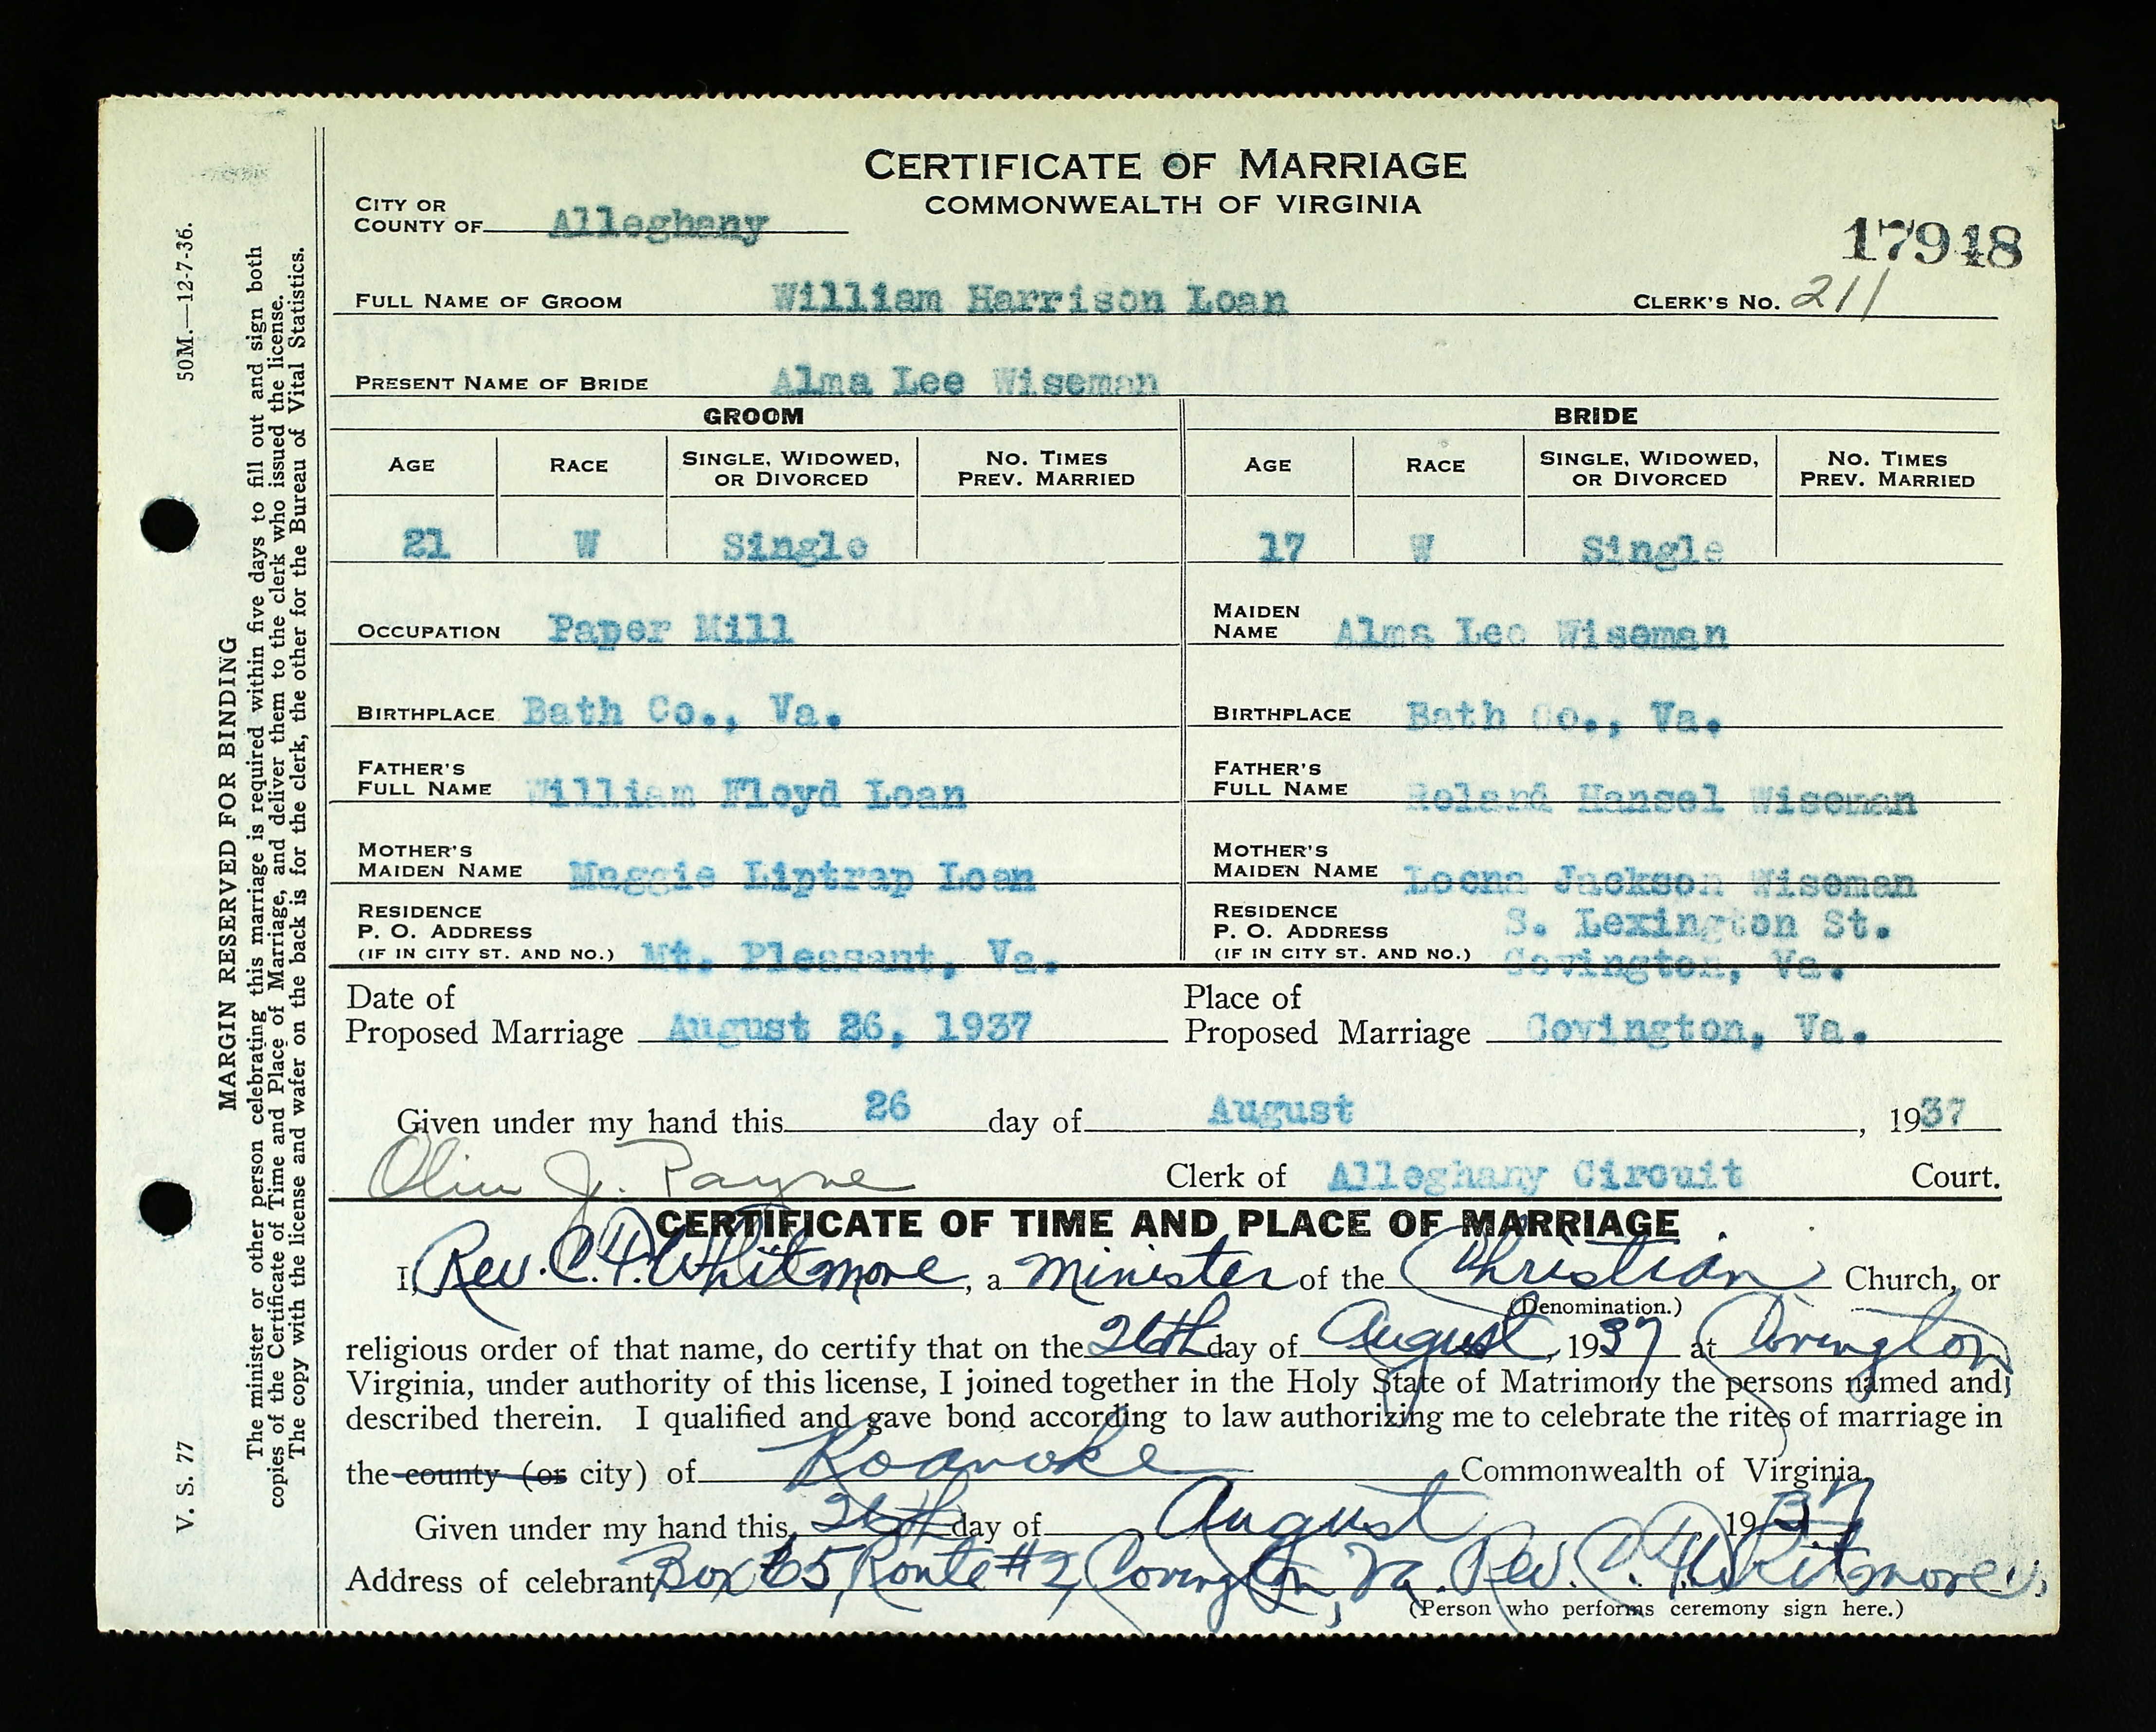 CERTIFICATE OF MARRIAGE
COMMONWEALTH OF VIRGINIA
CITY OR
COUNTY OF Alleghany
17948
FULL NAME OF GROOM William Harrison Loan CLERK'S NO. 211
PRESENT NAME OF BRIDE Alma Lee Wiseman
GROOM BRIDE
AGE RACE SINGLE, WIDOWED, OR DIVORCED NO. TIMES PREV. MARRIED AGE RACE SINGLE, WIDOWED, OR DIVORCED NO. TIMES PREV. MARRIED
21 W Single 17 W Single
OCCUPATION Paper Mill MAIDEN NAME Alma Lee Wiseman
BIRTHPLACE Bath Co., Va. BIRTHPLACE Bath Co., Va.
FATHER'S FULL NAME William Floyd Loan FATHER'S FULL NAME Roland Hansel Wiseman
MOTHER'S MAIDEN NAME Maggie Liptrap Loan MOTHER'S MAIDEN NAME Leona Jackson Wiseman
RESIDENCE P. O. ADDRESS (IF IN CITY ST. AND NO.) Mt. Pleasant, Va. RESIDENCE P. O. ADDRESS (IF IN CITY ST. AND NO.) S. Lexington St. Covington, Va.
Date of Proposed Marriage August 26, 1937 Place of Proposed Marriage Covington, Va.
Given under my hand this 26 day of August, 1937
Olin J. Payne Clerk of Alleghany Circuit Court.
CERTIFICATE OF TIME AND PLACE OF MARRIAGE
I, Rev. C. F. Whitmore, a minister of the Christian Church, or
(Denomination.)
religious order of that name, do certify that on the 26th day of August, 1937 at Covington
Virginia, under authority of this license, I joined together in the Holy State of Matrimony the persons named and
described therein. I qualified and gave bond according to law authorizing me to celebrate the rites of marriage in
the county (or city) of Roanoke Commonwealth of Virginia
Given under my hand this 26th day of August 1937
Address of celebrant Box 65, Route #2, Covington, Va. Rev. C. F. Whitmore
(Person who performs ceremony sign here.)
V. S. 77 50M.—12-7-36.
MARGIN RESERVED FOR BINDING
The minister or other person celebrating this marriage is required within five days to fill out and sign both
copies of the Certificate of Time and Place of Marriage, and deliver them to the clerk who issued the license.
The copy with the license and wafer on the back is for the clerk, the other for the Bureau of Vital Statistics.